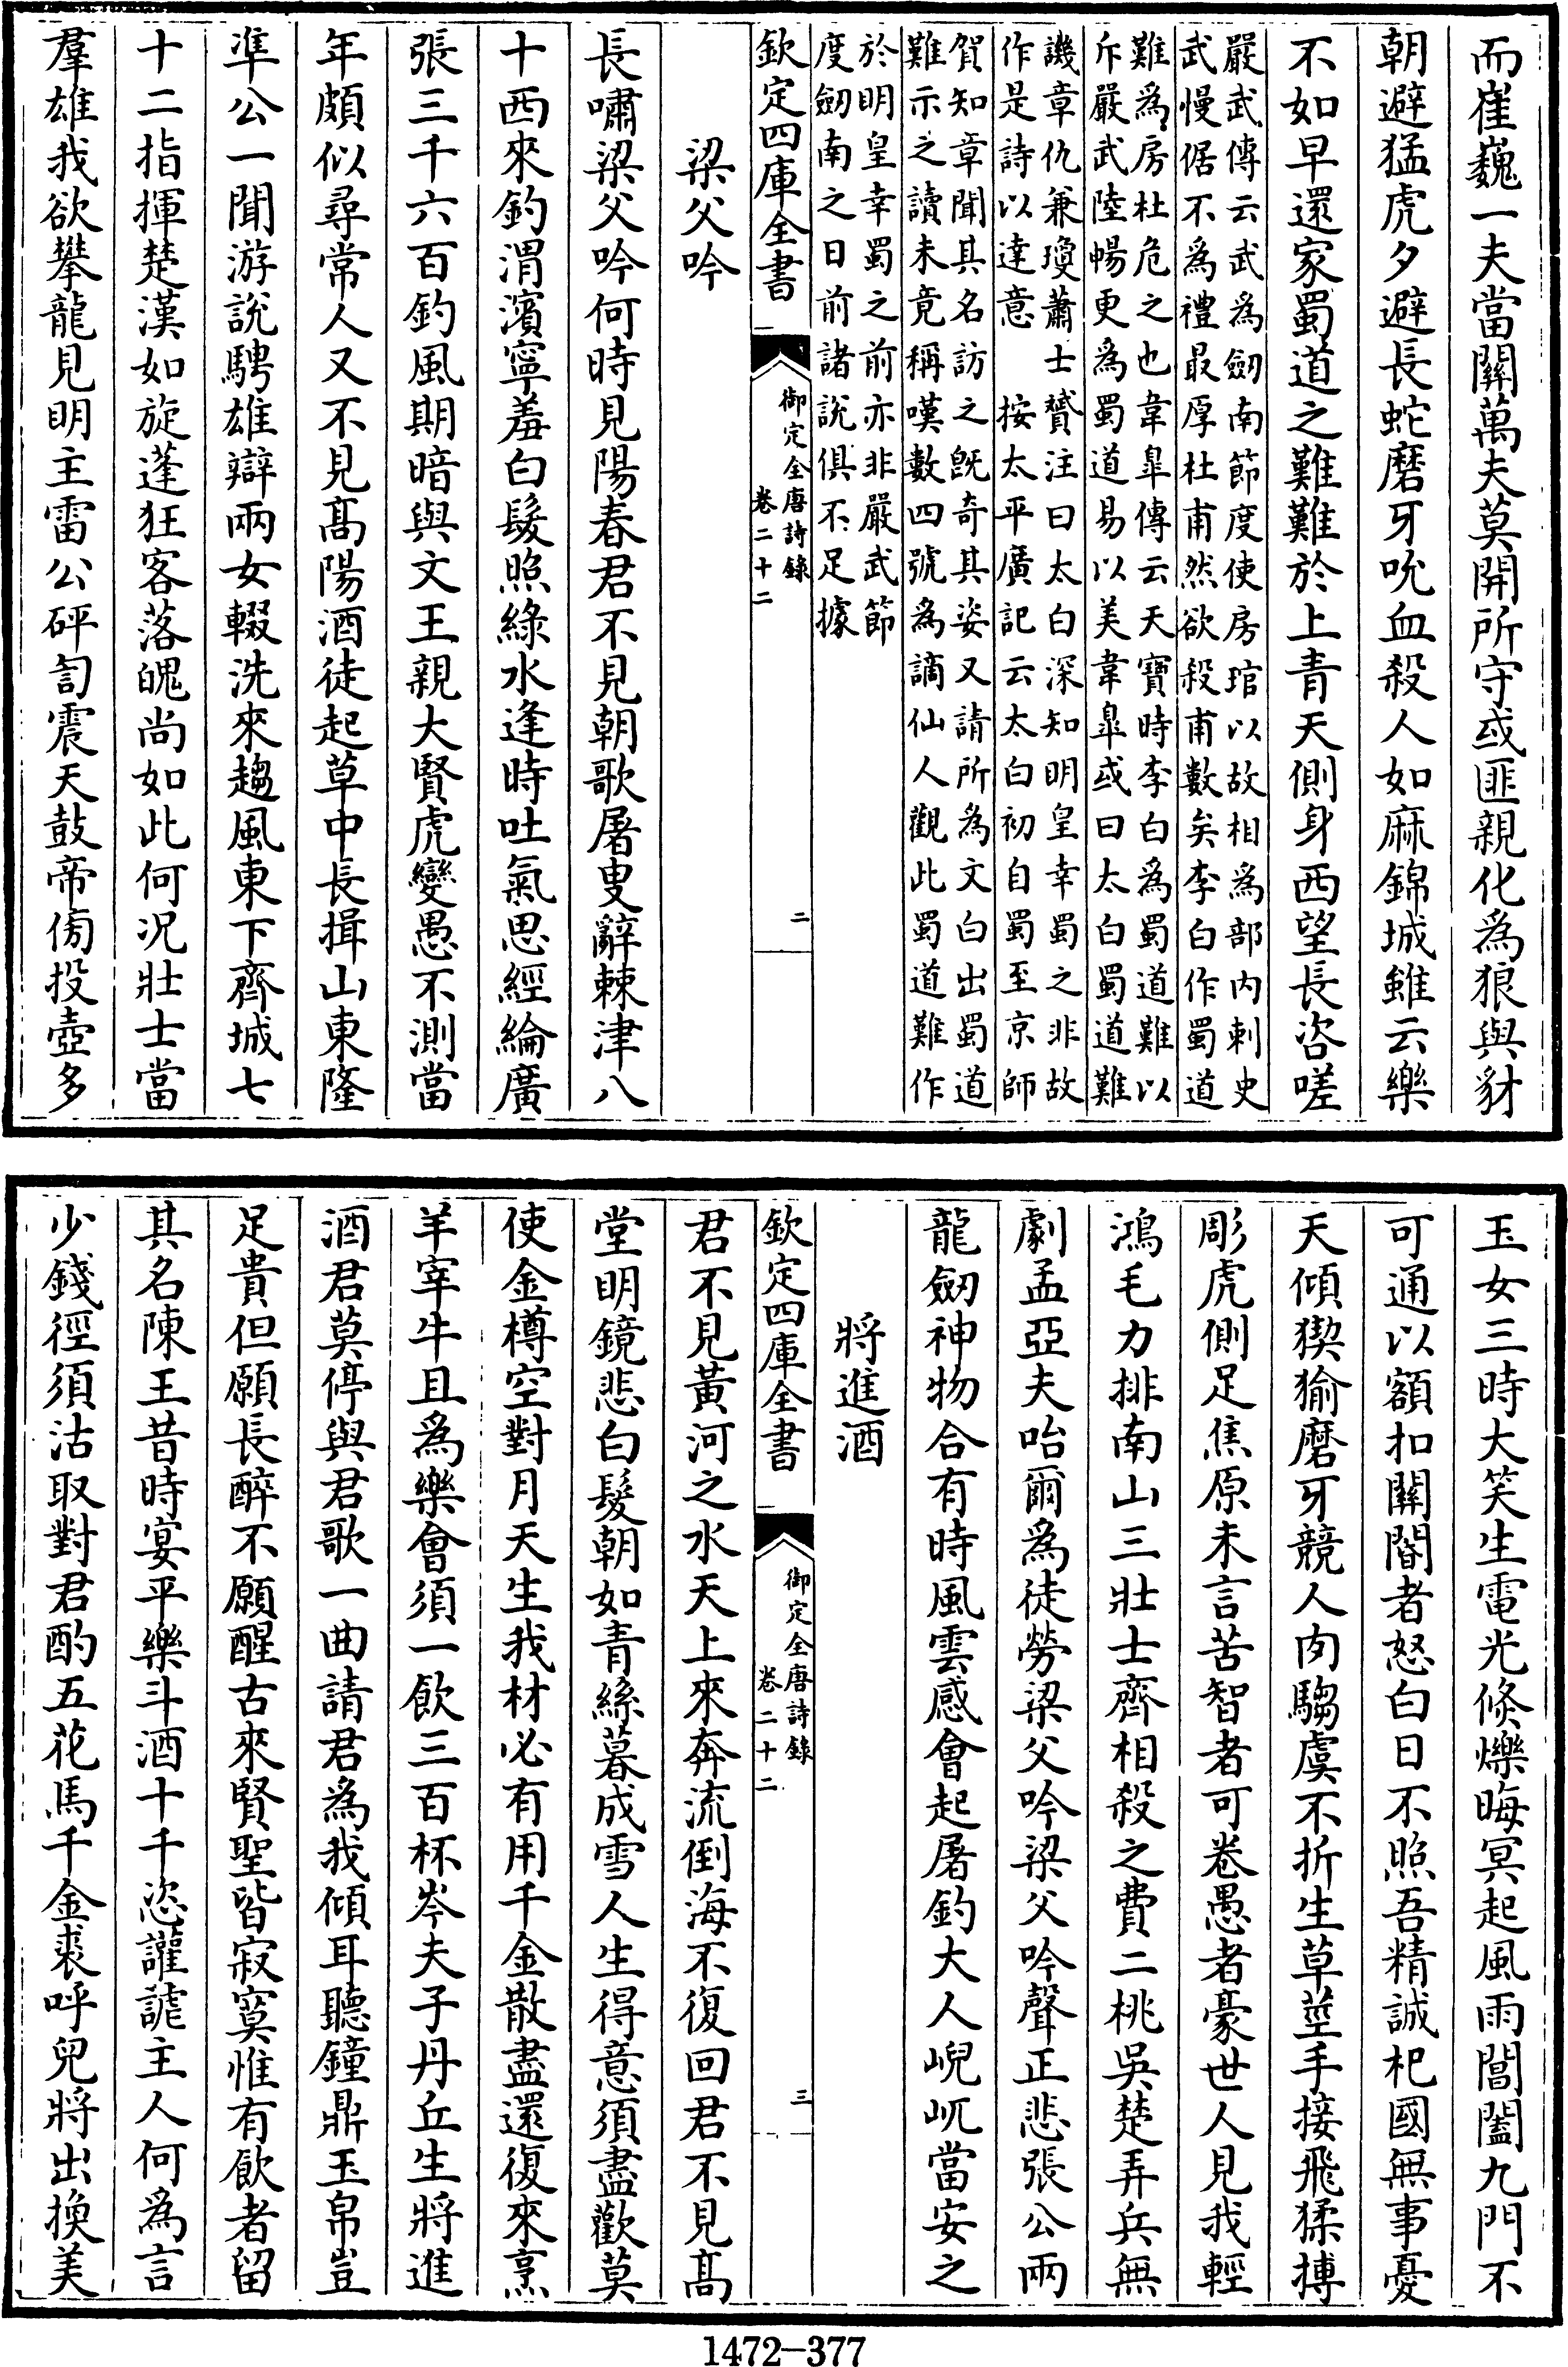 而崔巍一夫當關萬夫莫開所守或匪親化為狼與豺
朝避猛虎夕避長蛇磨牙吮血殺人如麻錦城雖云樂
不如早還家蜀道之難難於上青天側身西望長咨嗟
嚴武傳云武為劒南節度使房琯以故相為部内刺史
武慢倨不為禮最厚杜甫然欲殺甫數矣李白作蜀道
難為房杜危之也韋臯傳云天寶時李白為蜀道難以
斥嚴武陸暢更為蜀道易以美韋臯或曰太白蜀道難
譏章仇兼瓊蕭士贇注曰太白深知明皇幸蜀之非故
作是詩以達意　按太平廣記云太白初自蜀至京師
賀知章聞其名訪之旣奇其姿又請所為文白出蜀道
難示之讀未竟稱嘆數四號為謫仙人觀此蜀道難作
於明皇幸蜀之前亦非嚴武節
度劒南之日前諸說俱不足據
欽定四庫全書
御定全唐詩錄
卷二十二
二
梁父吟
長嘯梁父吟何時見陽春君不見朝歌屠叟辭棘津八
十西來釣渭濱寧羞白髮照綠水逢時吐氣思經綸廣
張三千六百釣風期暗與文王親大賢虎變愚不測當
年頗似尋常人又不見髙陽酒徒起草中長揖山東隆
凖公一聞游說騁雄辯兩女輟洗來趨風東下齊城七
十二指揮楚漢如旋蓬狂客落魄尚如此何况壯士當
羣雄我欲攀龍見明主雷公砰訇震天鼓帝傍投壺多
玉女三時大笑生電光倐爍晦冥起風雨閶闔九門不
可通以額扣關閽者怒白日不照吾精誠杞國無事憂
天傾猰㺄磨牙競人肉騶虞不折生草莖手接飛猱搏
彫虎側足焦原未言苦智者可卷愚者豪世人見我輕
鴻毛力排南山三壯士齊相殺之費二桃吳楚弄兵無
劇孟亞夫咍爾為徒勞梁父吟梁父吟聲正悲張公兩
龍劒神物合有時風雲感會起屠釣大人峴屼當安之
將進酒
欽定四庫全書
御定全唐詩錄
卷二十二
三
君不見黃河之水天上來奔流倒海不復回君不見髙
堂明鏡悲白髮朝如青絲暮成雪人生得意須盡歡莫
使金樽空對月天生我材必有用千金散盡還復來烹
羊宰牛且為樂會須一飲三百杯岑夫子丹丘生將進
酒君莫停與君歌一曲請君為我傾耳聽鐘鼎玉帛豈
足貴但願長醉不願醒古來賢聖皆寂寞惟有飲者留
其名陳王昔時宴平樂斗酒十千恣讙謔主人何為言
少錢徑須沽取對君酌五花馬千金裘呼兒將出換美
1472-377